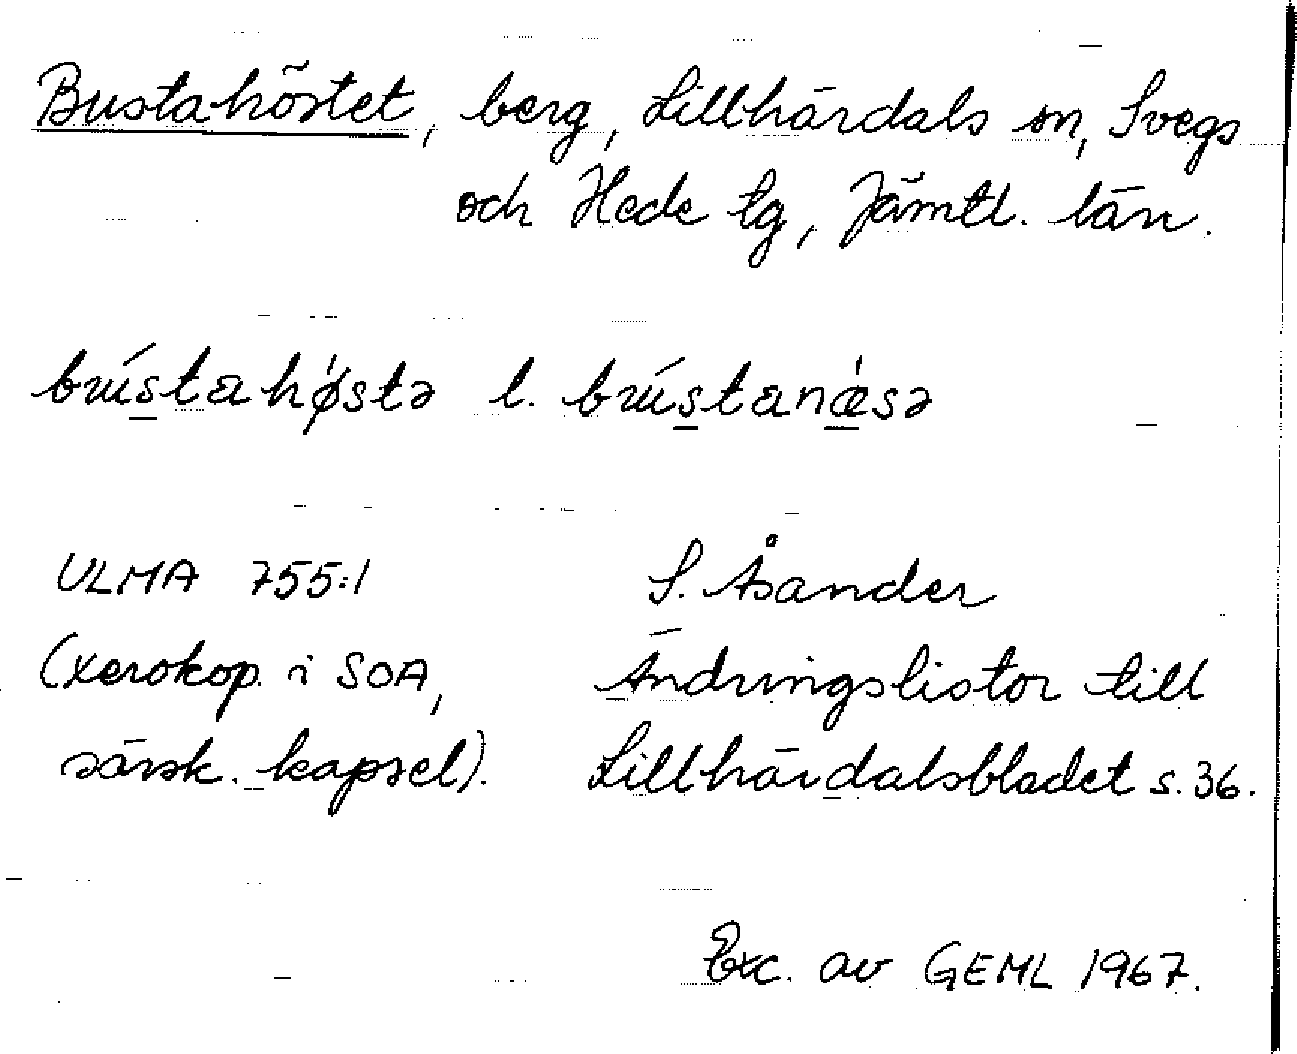 Bustahöstet, berg, Lillhärdals sn, Svegs
och Hede tg, Jämtl. län.
bústahǿstə l. bústanǽsə
ULMA 755:1
S. Åsander
(xerokop. i SOA,
Ändringslistor till
särsk. kapsel).
Lillhärdalsbladet s. 36.
Exc. av GEML 1967.